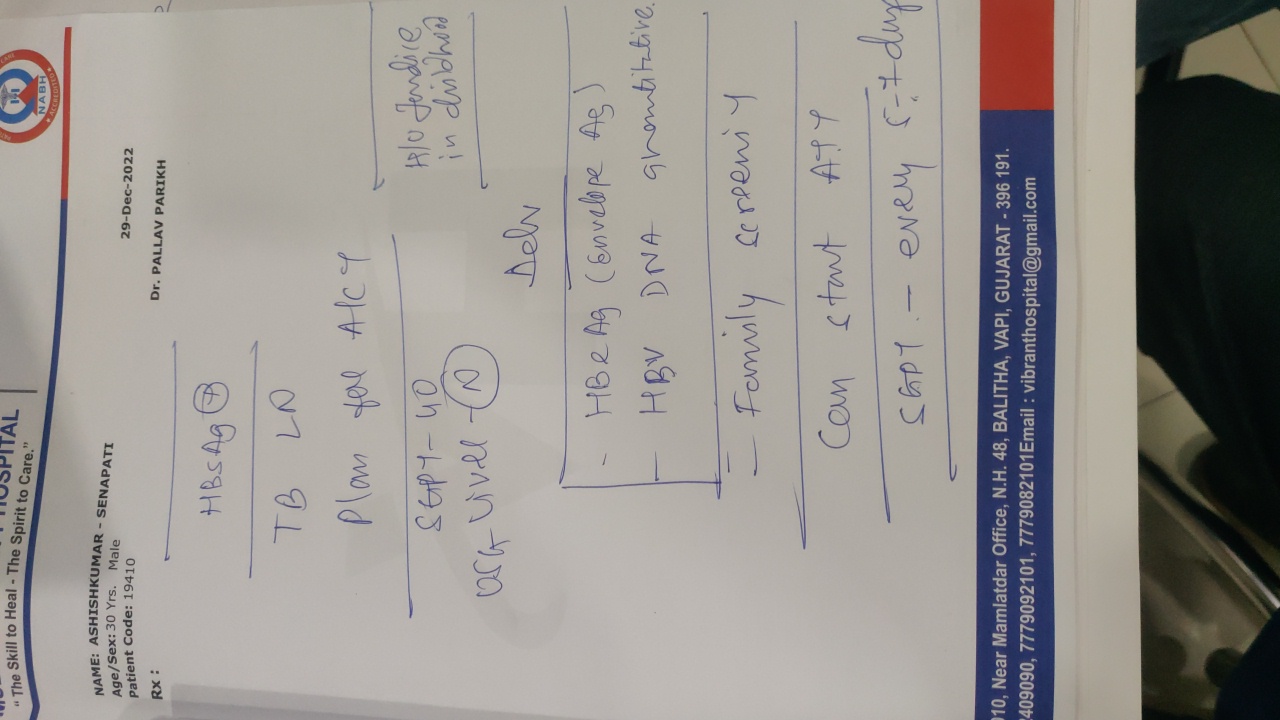 HOSPITAL
“ The Skill to Heal - The Spirit to Care.”
NABH
ACCREDITED
NAME: ASHISHKUMAR - SENAPATI
Age/Sex: 30 Yrs. Male
Patient Code: 19410
29-Dec-2022
Rx :
Dr. PALLAV PARIKH
HBsAg +
TB LN
Plan for
SGPT - 40
H/O Jandice
in childhood
USG Liver - N
Adv
- HBeAg (Envelope Ag)
- HBV DNA quantitative.
= Family screening
Can start ATT
SGPT. - every 5-7 days
010, Near Mamlatdar Office, N.H. 48, BALITHA, VAPI, GUJARAT - 396 191.
2409090, 7779092101, 7779082101Email : vibranthospital@gmail.com